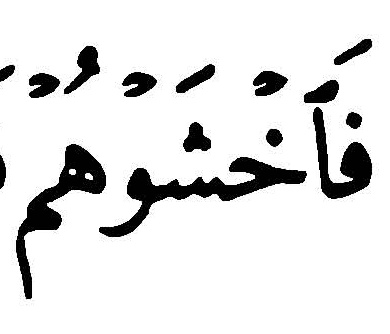 فَٱخْشَوْهُمْ